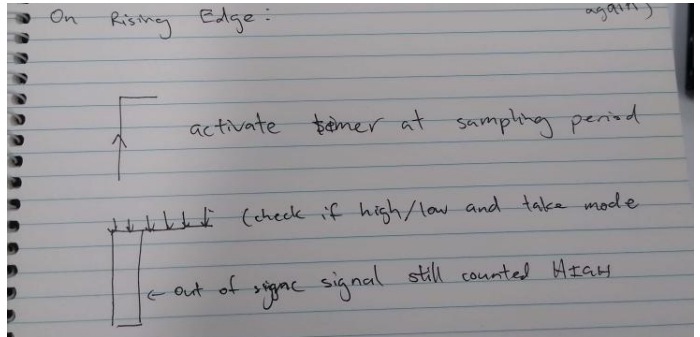 On Rising Edge:
again)
activate timer at sampling period
(check if high/low and take mode
out of sync signal still counted HIGH